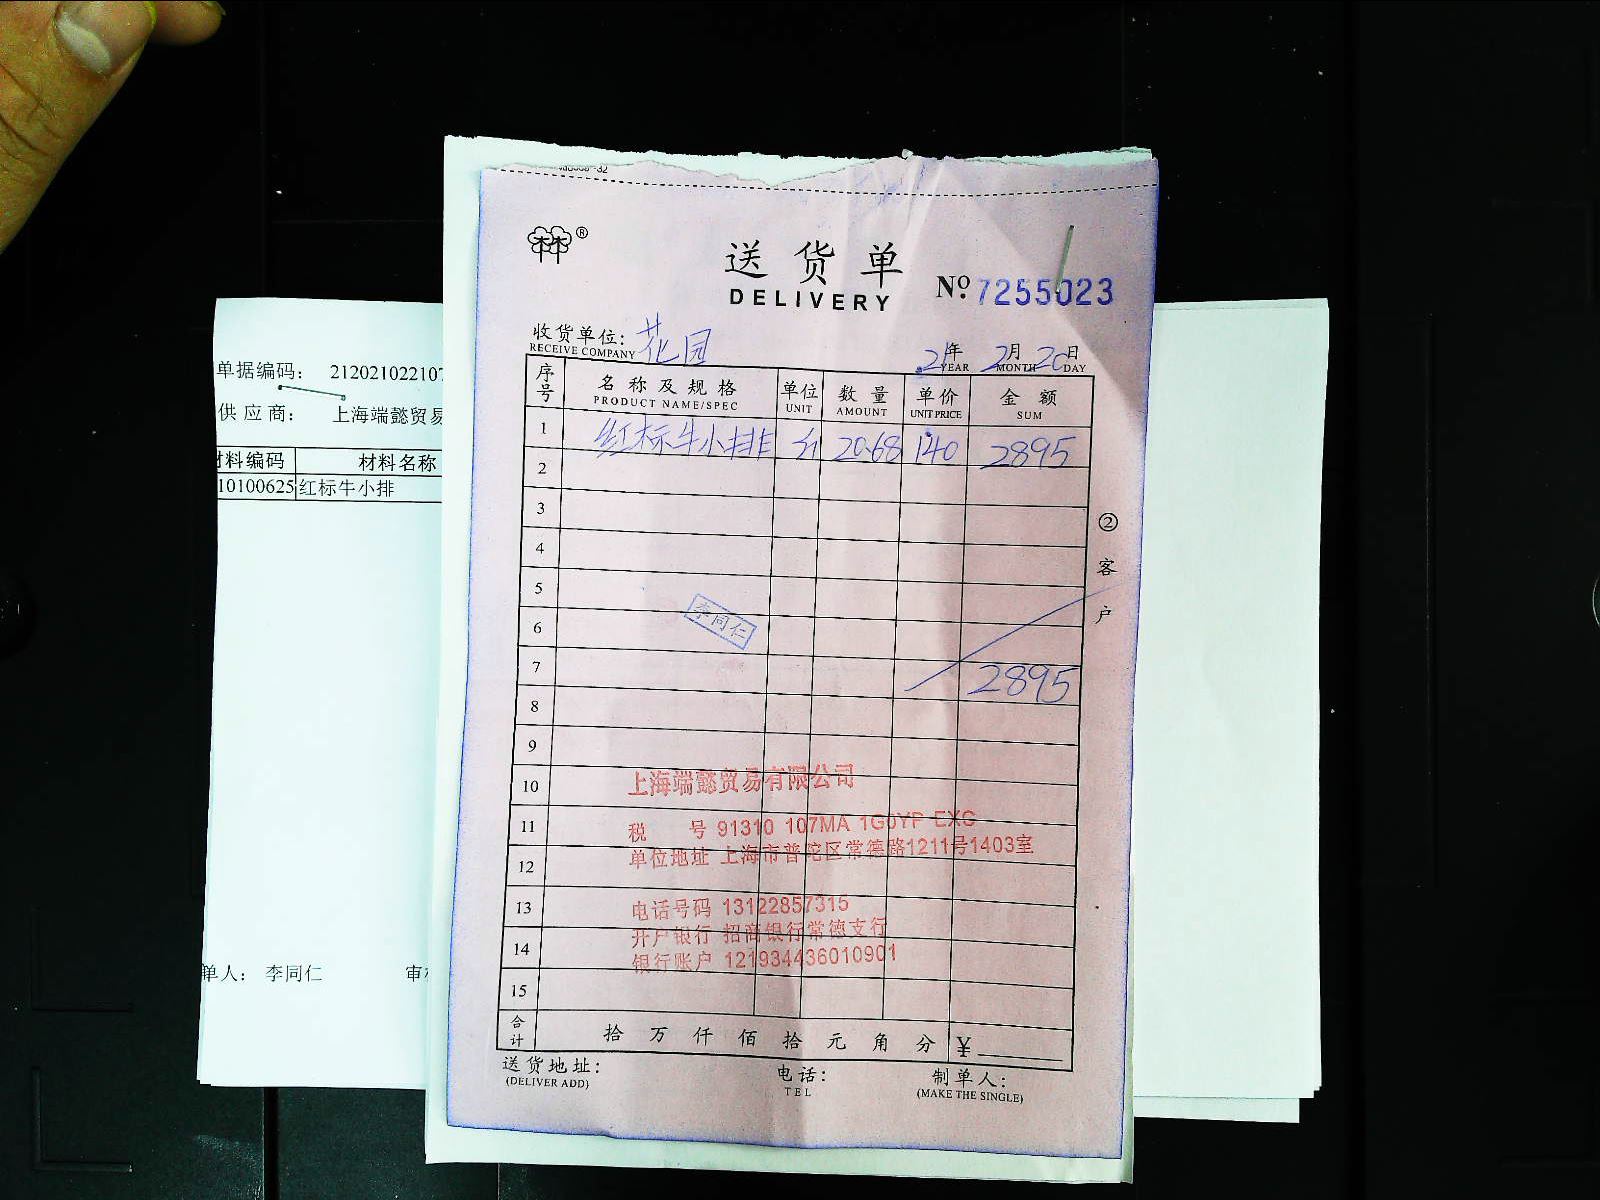 送货单
DELIVERY
№ 7255023
收货单位: 花园
RECEIVE COMPANY
21年 2月 20日
YEAR MONTH DAY
序号 名称及规格 单位 数量 单价 金额
PRODUCT NAME/SPEC UNIT AMOUNT UNIT PRICE SUM
1 红标牛小排 斤 20.68 140 2895
2
3
4
5
6
李同仁
7 2895
8
9
10
上海端懿贸易有限公司
11
税 号 91310 107MA 1G0YP EXC
单位地址 上海市普陀区常德路1211号1403室
12
13
电话号码 13122857315
开户银行 招商银行常德支行
14
银行账户 121934436010901
15
合计 拾 万 仟 佰 拾 元 角 分 ¥
送货地址: 电话: 制单人:
(DELIVER ADD) TEL (MAKE THE SINGLE)
②客户
单据编码: 212021022107
供应商: 上海端懿贸易
材料编码 材料名称
10100625 红标牛小排
单人: 李同仁 审